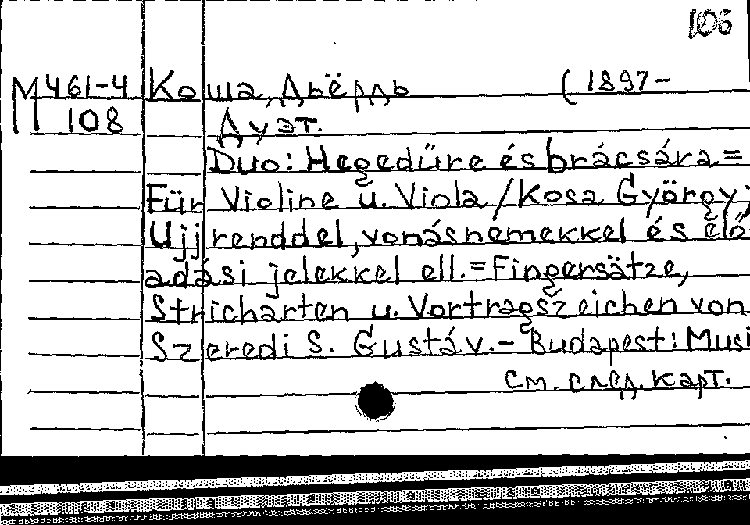 106
М461-4 Коша, Дьёрдь (1897-
108 Дуэт.
Duo: Hegedüre és brácsára =
Für Violine u. Viola / Kosa György;
Ujjrenddel, vonásnemekkel és elő-
adási jelekkel ell. = Fingersätze,
Stricharten u. Vortragszeichen von
Szeredi S. Gustáv. - Budapest: Musi
см. след. карт.